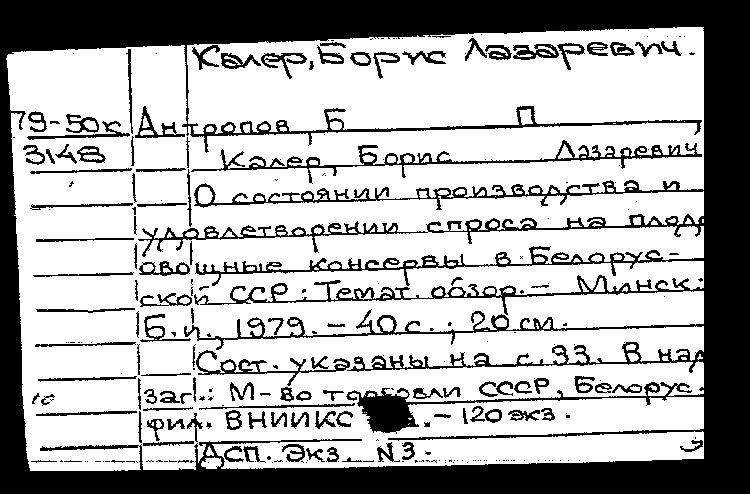 Калер, Борис Лазаревич.
79-50к Антропов, Б П ,
3148 Калер, Борис Лазаревич
О состоянии производства и
удовлетворении спроса на плодо
овощные консервы в Белорус-
ской ССР: Темат. обзор.- Минск:
Б.и., 1979. - 40 с.; 20 см.
Сост. указаны на с.33. В над
10 заг.: М-во торговли СССР, Белорус.
фил. ВНИИКС .- 120 экз.
ДСП. Экз. N3.